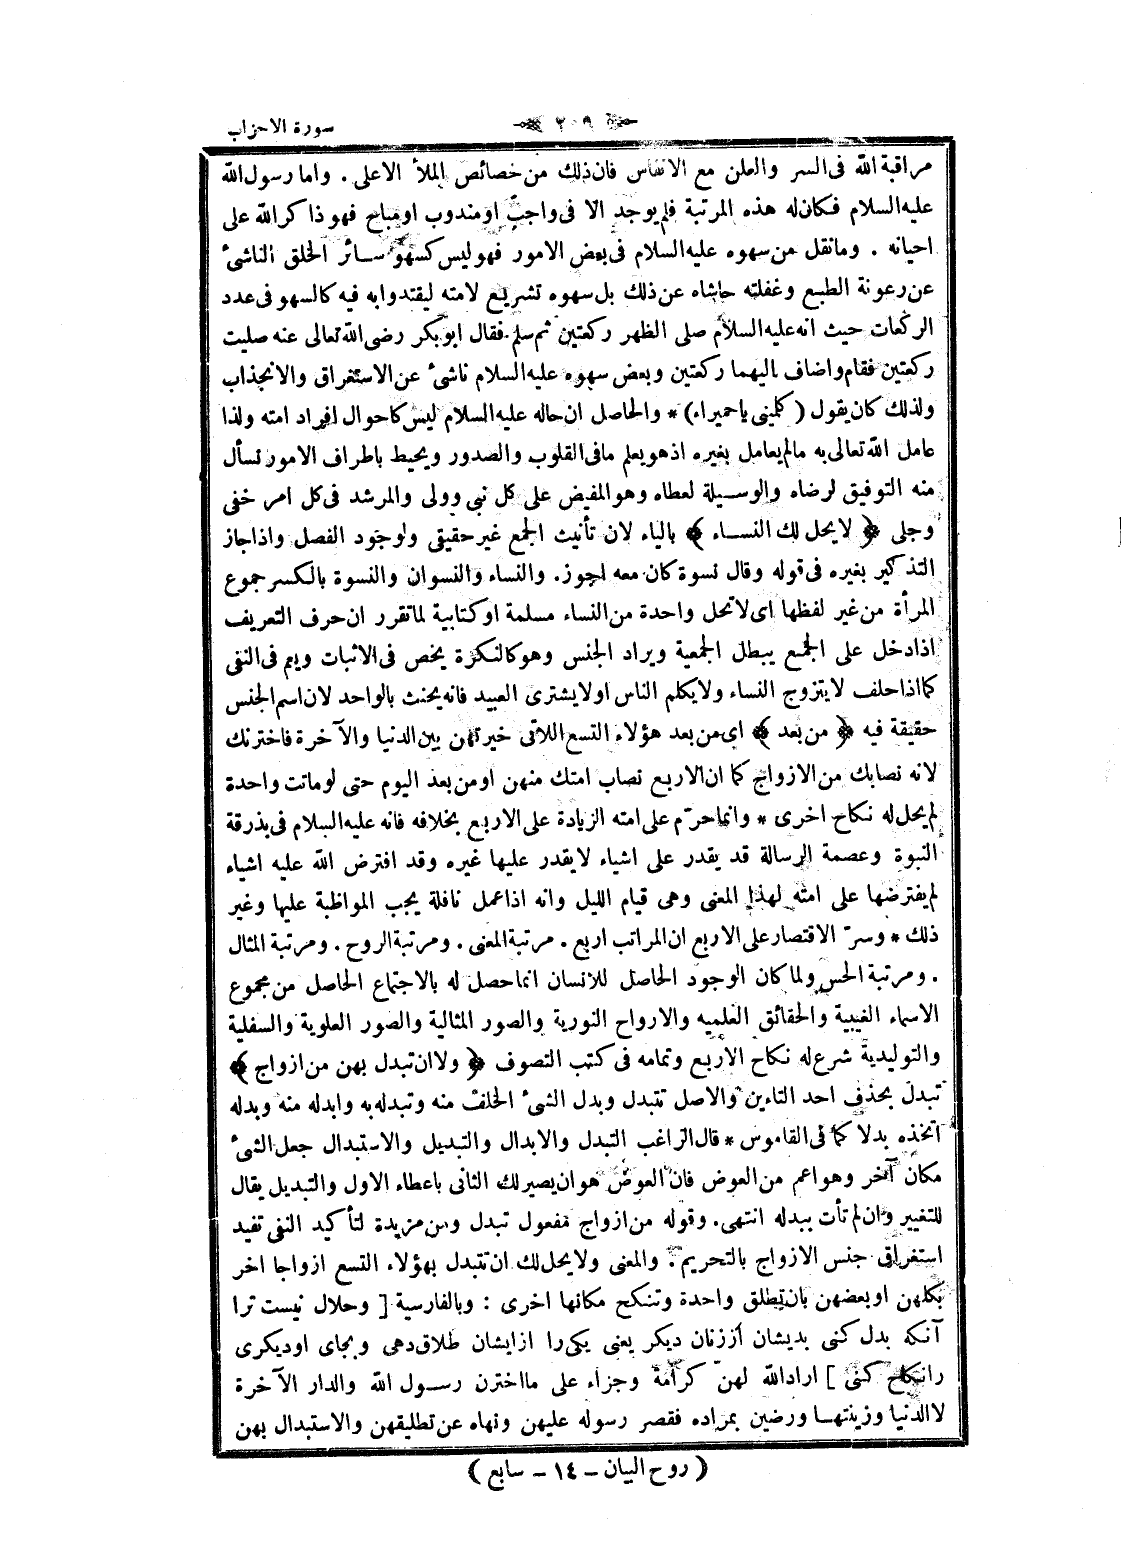 سورة الاحزاب
٢٠٩
مراقبة الله فى السر والعلن مع الانفاس فان ذلك من خصائص الملأ الاعلى . واما رسول الله
عليه السلام فكان له هذه المرتبة فلم يوجد الا فى واجب او مندوب او مباح فهو ذاكر الله على
احيانه . وما نقل من سهوه عليه السلام فى بعض الامور فهو ليس كسهو سائر الخلق الناشئ
عن رعونة الطبع وغفلته حاشاه عن ذلك بل سهوه تشريع لامته ليقتدوا به فيه كالسهو فى عدد
الركعات حيث انه عليه السلام صلى الظهر ركعتين ثم سلم فقال ابو بكر رضى الله تعالى عنه صليت
ركعتين فقام واضاف اليهما ركعتين وبعض سهوه عليه السلام ناشئ عن الاستغراق والانجذاب
ولذلك كان يقول ( كلمينى يا حميراء ) * والحاصل ان حاله عليه السلام ليس كاحوال افراد امته ولذا
عامل الله تعالى به مالم يعامل بغيره اذ هو يعلم ما فى القلوب والصدور ويحيط باطراف الامور نسأل
منه التوفيق لرضاه والوسيلة لعطاه وهو المفيض على كل نبى وولى والمرشد فى كل امر خفى
وجلى ﴿ لا يحل لك النساء ﴾ بالياء لان تأنيث الجمع غير حقيقى ولوجود الفصل واذا جاز
التذكير بغيره فى قوله وقال نسوة كان معه اجوز. والنساء والنسوان والنسوة بالكسر جموع
المرأة من غير لفظها اى لا تحل واحدة من النساء مسلمة او كتابية لما تقرر ان حرف التعريف
اذا دخل على الجمع يبطل الجمعية ويراد الجنس وهو كالنكرة يخص فى الاثبات ويعم فى النفى
كما اذا حلف لا يتزوج النساء ولا يكلم الناس او لا يشترى العبيد فانه يحنث بالواحد لان اسم الجنس
حقيقة فيه ﴿ من بعد ﴾ اى من بعد هؤلاء التسع اللاتى خيرتهن بين الدنيا والآخرة فاخترنك
لانه نصابك من الازواج كما ان الاربع نصاب امتك منهن او من بعد اليوم حتى لو ماتت واحدة
لم يحل له نكاح اخرى * وانما حرّم على امته الزيادة على الاربع بخلافه فانه عليه السلام فى بذرقة
النبوة وعصمة الرسالة قد يقدر على اشياء لا يقدر عليها غيره وقد افترض الله عليه اشياء
لم يفترضها على امته لهذا المعنى وهى قيام الليل وانه اذا عمل نافلة يجب المواظبة عليها وغير
ذلك * وسرّ الاقتصار على الاربع ان المراتب اربع . مرتبة المعنى . ومرتبة الروح . ومرتبة المثال
. ومرتبة الحس ولما كان الوجود الحاصل للانسان انما حصل له بالاجتماع الحاصل من مجموع
الاسماء الغيبية والحقائق العلميه والارواح النورية والصور المثالية والصور العلوية والسفلية
والتوليدية شرع له نكاح الاربع وتمامه فى كتب التصوف ﴿ ولا ان تبدل بهن من ازواج ﴾
تبدل بحذف احد التاءين والاصل تتبدل وبدل الشئ الخلف منه وتبدله به وابدله منه وبدله
اتخذه بدلا كما فى القاموس * قال الراغب التبدل والابدال والتبديل والاستبدال جعل الشئ
مكان آخر وهو اعم من العوض فان العوض هو ان يصير لك الثانى باعطاء الاول والتبديل يقال
للتغيير وان لم تأت ببدله انتهى. وقوله من ازواج مفعول تبدل ومن مزيدة لتأكيد النفى تفيد
استغراق جنس الازواج بالتحريم . والمعنى ولا يحل لك ان تتبدل بهؤلاء التسع ازواجا اخر
بكلهن او بعضهن بان تطلق واحدة وتنكح مكانها اخرى : وبالفارسية [ وحلال نيست ترا
آنكه بدل كنى بديشان اززنان ديكر يعنى يكى را ازايشان طلاق دهى وبجاى او ديكرى
را نكاح كنى ] اراد الله لهنّ كرامة وجزاء على ما اخترن رسول الله والدار الآخرة
لا الدنيا وزينتها ورضين بمراده فقصر رسوله عليهن ونهاه عن تطليقهن والاستبدال بهن
( روح البيان – ١٤ – سابع )